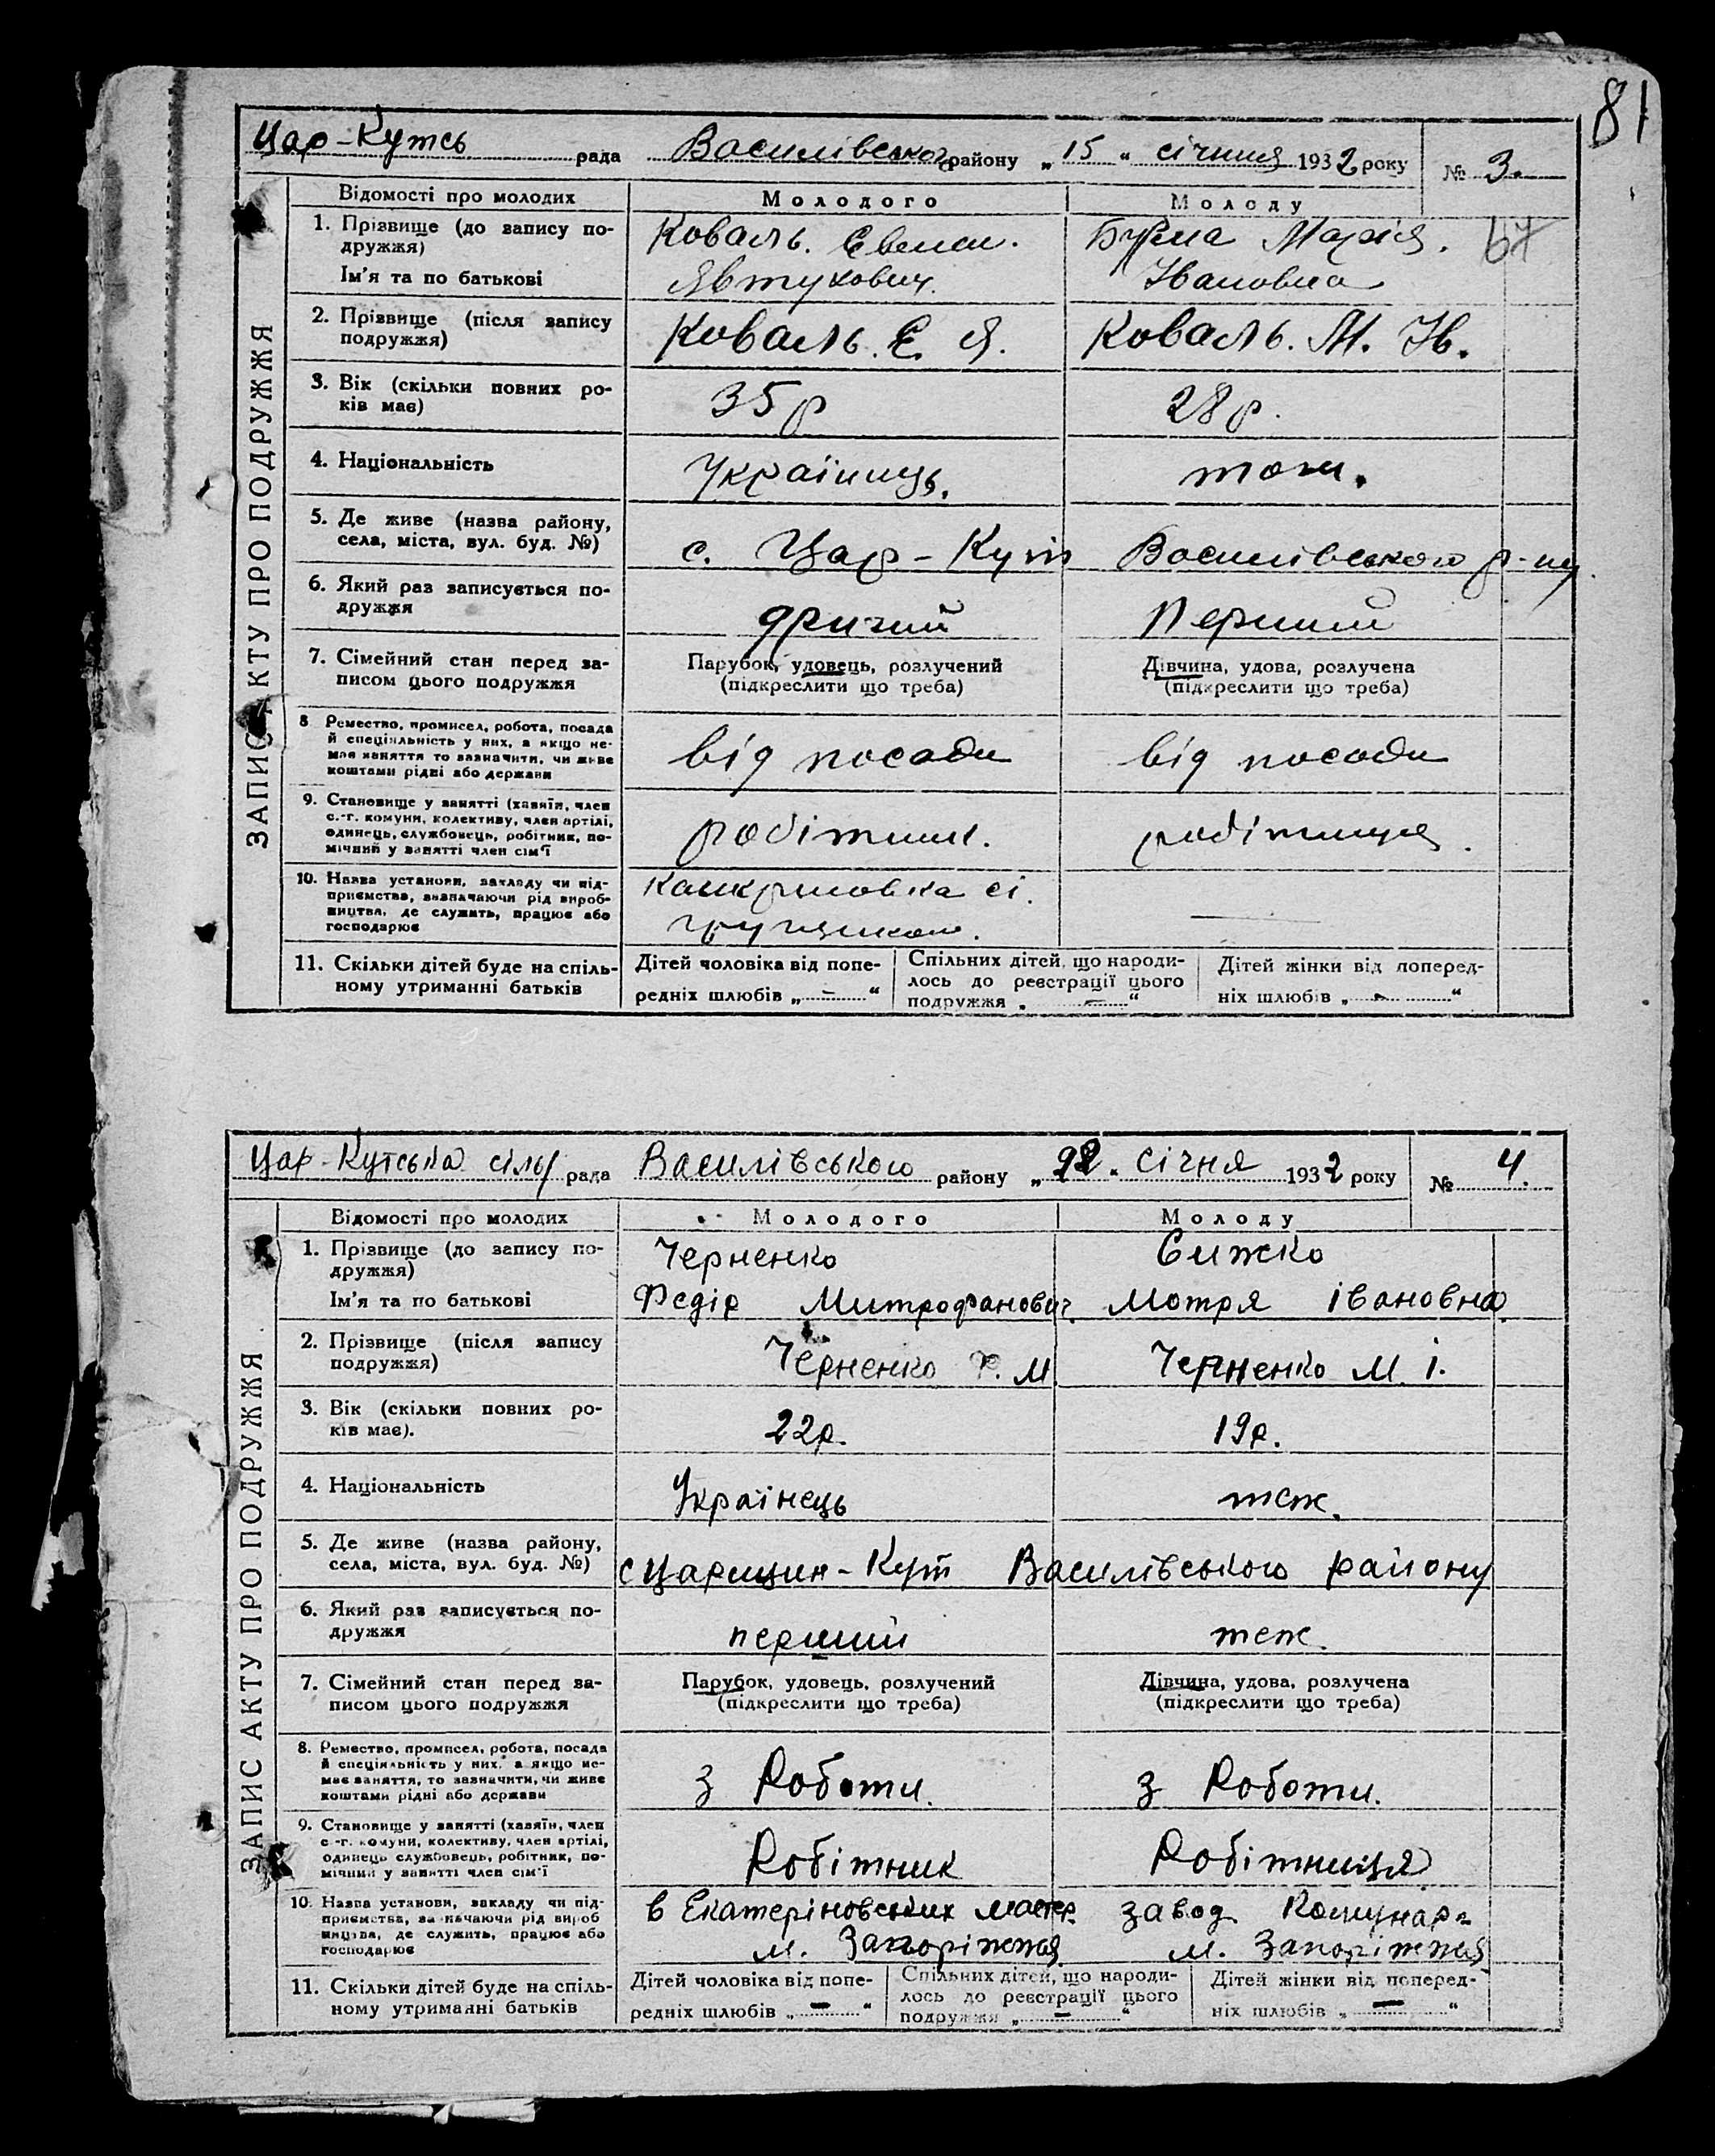 81
Цар-Кутсь рада Василівського району „15“ січння 1932 року № 3.
Відомості про молодих Молодого Молоду
1. Прізвище (до запису по-
дружжя) Коваль. Бурма Марія. 67
Ім'я та по батькові Явтухович. Ивановна
2. Прізвище (після запису
подружжя) Коваль. Є. Я. Коваль. М. Ив.
3. Вік (скільки повних ро-
ків має) 35 р 28 р.
4. Національність Українець. тож.
5. Де живе (назва району,
села, міста, вул. буд. №) с. Цар-Кут Василівського р-ну.
6. Який раз записується по-
дружжя другий Перший
7. Сімейний стан перед за-
писом цього подружжя
Парубок, удовець, розлучений
(підкреслити що треба)
Дівчина, удова, розлучена
(підкреслити що треба)
8 Ремество, промисел, робота, посада
й спеціяльність у них, а якщо не-
має заняття то зазначити, чи живе
коштами рідні або держави
від посади від посади
9. Становище у занятті (хазяїн, член
с.-г. комуни, колективу, член артілі,
одинець, службовець, робітник, по-
мічний у занятті член сім'ї
робітник. робітниця.
10. Назва установи, закладу чи під-
приємства, зазначаючи рід вироб-
ництва, де служить, працює або
господарює
11. Скільки дітей буде на спіль-
ному утриманні батьків
Дітей чоловіка від попе-
редніх шлюбів „ – “
Спільних дітей, що народи-
лось до реєстрації цього
подружжя „ – “
Дітей жінки від поперед-
ніх шлюбів „ – “
ЗАПИС АКТУ ПРО ПОДРУЖЖЯ
Цар-Кутська сіль/ рада Василівського району „22“ січня 1932 року № 4.
Відомості про молодих Молодого Молоду
1. Прізвище (до запису по-
дружжя) Черненко Сижко
Ім'я та по батькові Федір Митрофанович. Мотря Івановна.
2. Прізвище (після запису
подружжя) Черненко Ф. М. Черненко М. І.
3. Вік (скільки повних ро-
ків має). 22р. 19р.
4. Національність Українець теж.
5. Де живе (назва району,
села, міста, вул. буд. №) с Царицин-Кут Василівського району
6. Який раз записується по-
дружжя перший теж.
7. Сімейний стан перед за-
писом цього подружжя
Парубок, удовець, розлучений
(підкреслити що треба)
Дівчина, удова, розлучена
(підкреслити що треба)
8. Ремество, промисел, робота, посада
й спеціяльність у них, а якщо не-
має заняття, то зазначити, чи живе
коштами рідні або держави
з Роботи. з Роботи.
9. Становище у занятті (хазяїн, член
с.-г. комуни, колективу, член артілі,
одинець службовець, робітник, по-
мічний у занятті член сім'ї
Робітник Робітниця
10. Назва установи, закладу чи під-
приємства, зазначаючи рід вироб
ництва, де служить, працює або
господарює
в Екатеріновських мастер.
м. Запоріжжя
завод Комунар
м. Запоріжжя
11. Скільки дітей буде на спіль-
ному утриманні батьків
Дітей чоловіка від попе-
редніх шлюбів „ – “
Спільних дітей, що народи-
лось до реєстрації цього
подружжя „ – “
Дітей жінки від поперед-
ніх шлюбів „ – “
ЗАПИС АКТУ ПРО ПОДРУЖЖЯ